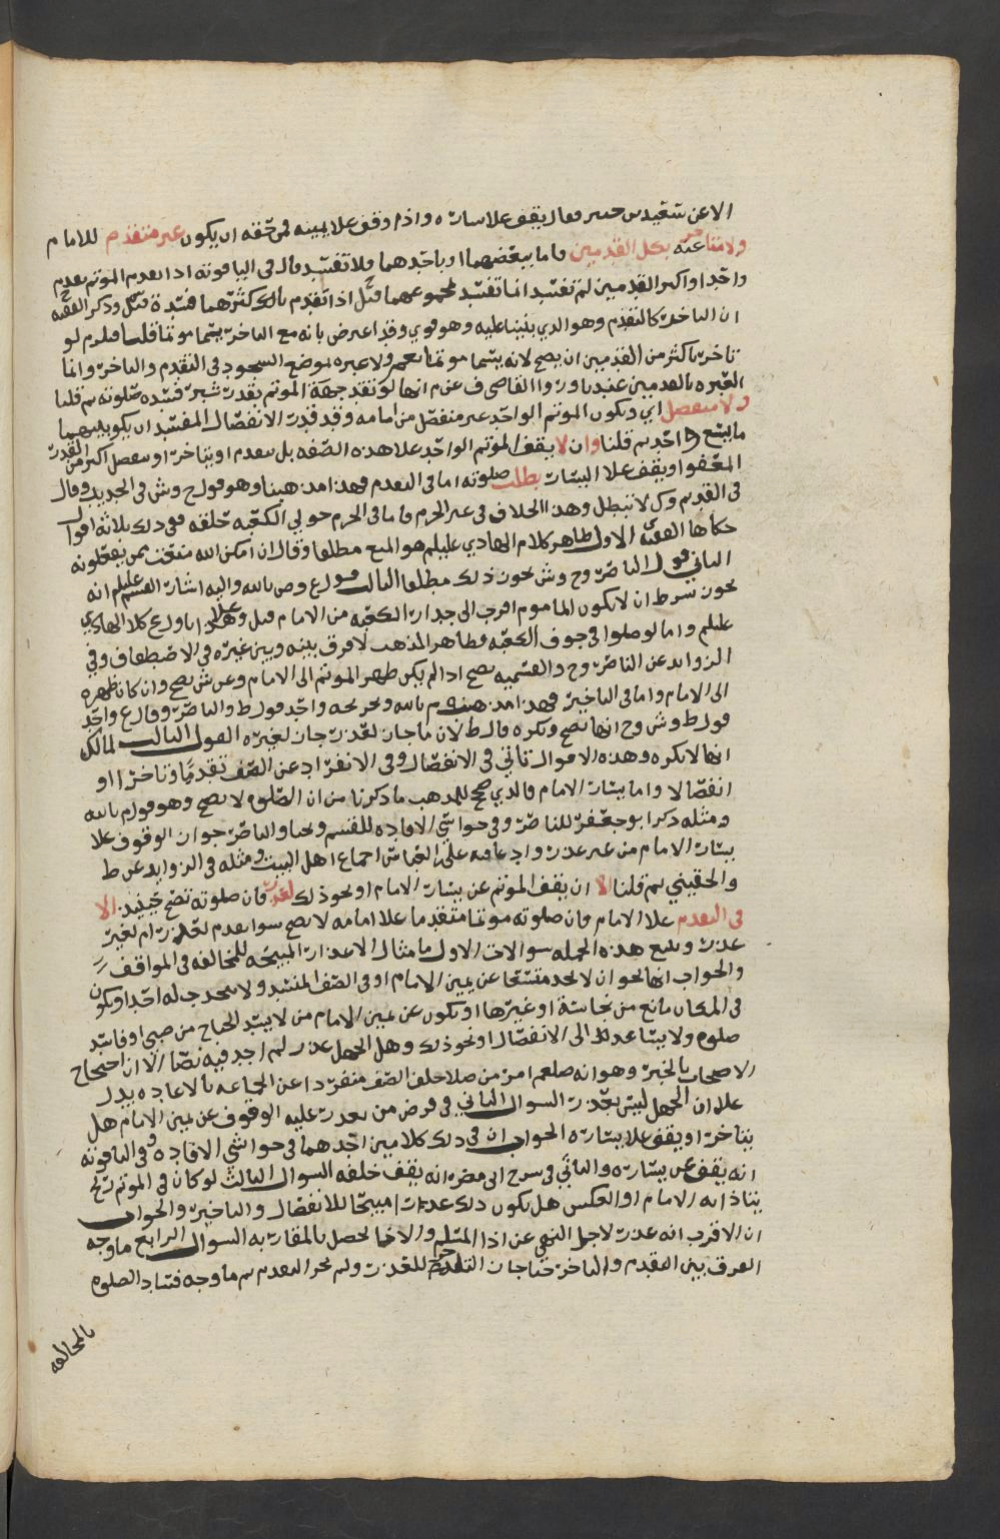 الا عن سعيد بن جبير فقال يقف علا يساره واذا وقف علا يمينه فمن حقه ان يكون غير متقدم للامام
ولا متاخر عنه بكل القدمين فاما ببعضهما او باحدهما فلا تفسد قال في الياقوته اذا تقدم الموتم بقدم
واحد او اكبر القدمين لم تفسد انما تفسد لمجموعهما قيل اذا تقدم باكثرهما فسدة وذكر الفقيه
ان التاخر كالتقدم وهو الذي بنينا عليه وهو قوي وقد اعترض بانه مع التاخر يسما موتما قلنا فلزم لو
تاخر باكثر من القدمين ان يصح لانه يسما موتما نعم ولا عبره لموضع السجود في التقدم والتاخر وانما
العبره بالقدمين عندنا وروا القاضي ف عن م انها لو تقدم جهة الموتم بقدر شبر فسده صلوته ثم قلنا
ولا منفصل اي ويكون الموتم الواحد غير منفصل من امامه وقد قدر الانفصال المفسد ان يكون بينهما
ما يسع واحد ثم قلنا وان لا يقف الموتم الواحد علا هذه الصفه بل تقدم او يتاخر او ينفصل اكثر من القدر
المعفو او يقف علا اليسار بطلت صلوته اما في التقدم فهذا مذهبنا وهو قول ح وش في الجديد وقال
في القديم وك لا تبطل وهذا الخلاف في غير الحرم فاما في الحرم حوالي الكعبه خلفه ففي ذلك ثلاثه اقوال
حكاها الفقيه الاول ظاهر كلام الهادي عليلم هو المنع مطلقا وقال ان امكن الله منعت من يفعلونه
الثاني قول الناصر وح وش يجوز ذلك مطلقا الثالث قول ع وص بالله واليه اشار القسم عليلم انه
يجوز بشرط ان لا يكون الماموم اقرب الى جدار الكعبه من الامام قيل وعلى هذا تاول ع كلام الهادي
عليلم واما لو صلوا في جوف الكعبه فظاهر المذهب لا فرق بينه وبين غيره في الاصطفاف وفي
الزوايد عن الناصر وح والقسميه يصح اذا لم يكن ظهر الموتم الى الامام وعن ش يصح وان كان ظهره
الى الامام واما في التاخير فهذا مذهب م بالله وتخريجه واحد قول ط والناصر وقال ع واحد
قول ط وش وح انها تصح ويكره قال ط لان ما جاز لعذر جاز لغيره القول الثالث لمالك
انها لا يكره وهذه الاقوال تاتي في الانفصال وفي الانفراد عن الصف تقدما وتاخرا او
انفصالا واما يسار الامام فالذي صح للمذهب ما ذكرنا من ان الصلوه لا تصح وهو قول م بالله
ومثله ذكر ابو جعفر للناصر وفي حواشي الافاده للقسم ويحيا والناصر جواز الوقوف علا
يسار الامام من غير عذر وادعا فيه على النحاس اجماع اهل البيت ومثله في الزوايد عن ط
والحقيني ثم قلنا الا ان يقف الموتم عن يسار الامام او نحو ذلك لعذر فان صلوته تصح حينيذ الا
في التقدم علا الامام فان صلوته موتما متقدما علا امامه لا يصح سوا تقدم لعذر ام لغير
عذر وتتبع هذه الجمله سوالات الاول ما مثال الاعذار المبيحه للمخالفه في المواقف
والجواب انها نحو ان لا يجد متسعا عن يمين الامام او في الصف المنسد ولا ينجذب له احد او يكون
في المكان مانع من نجاسة او غيرها او يكون عن يمين الامام من لا يسد الجناح من صبي او فاسد
صلوه ولا يساعده الى الانفصال او نحو ذلك وهل الجهل عذر لم اجد فيه نصا الا ان احتجاج
الاصحاب بالخبر وهو انه صلعم امر من صلا خلف الصف منفردا عن الجماعه بالاعاده يدل
علا ان الجهل ليس بعذر السوال الثاني في فرض من تعذر عليه الوقوف عن يمين الامام هل
يتاخر او يقف علا يساره الجواب ان في ذلك كلامين احدهما في حواشي الافاده وفي الياقوته
انه يقف عن يساره والثاني في شرح ابي مضر انه يقف خلفه السوال الثالث لو كان في الموتم ريح
يتاذا به الامام او العكس هل يكون ذلك عذرا مبيحا للانفصال والتاخير والجواب
ان الاقرب انه عذر لاجل النهي عن اذا المسلم والاذا يحصل بالمقاربه السوال الرابع ما وجه
الفرق بين التقدم والتاخر حتا جاز التاخر للعذر ولم يجز التقدم ثم ما وجه فساد الصلوه
بالمخالفه